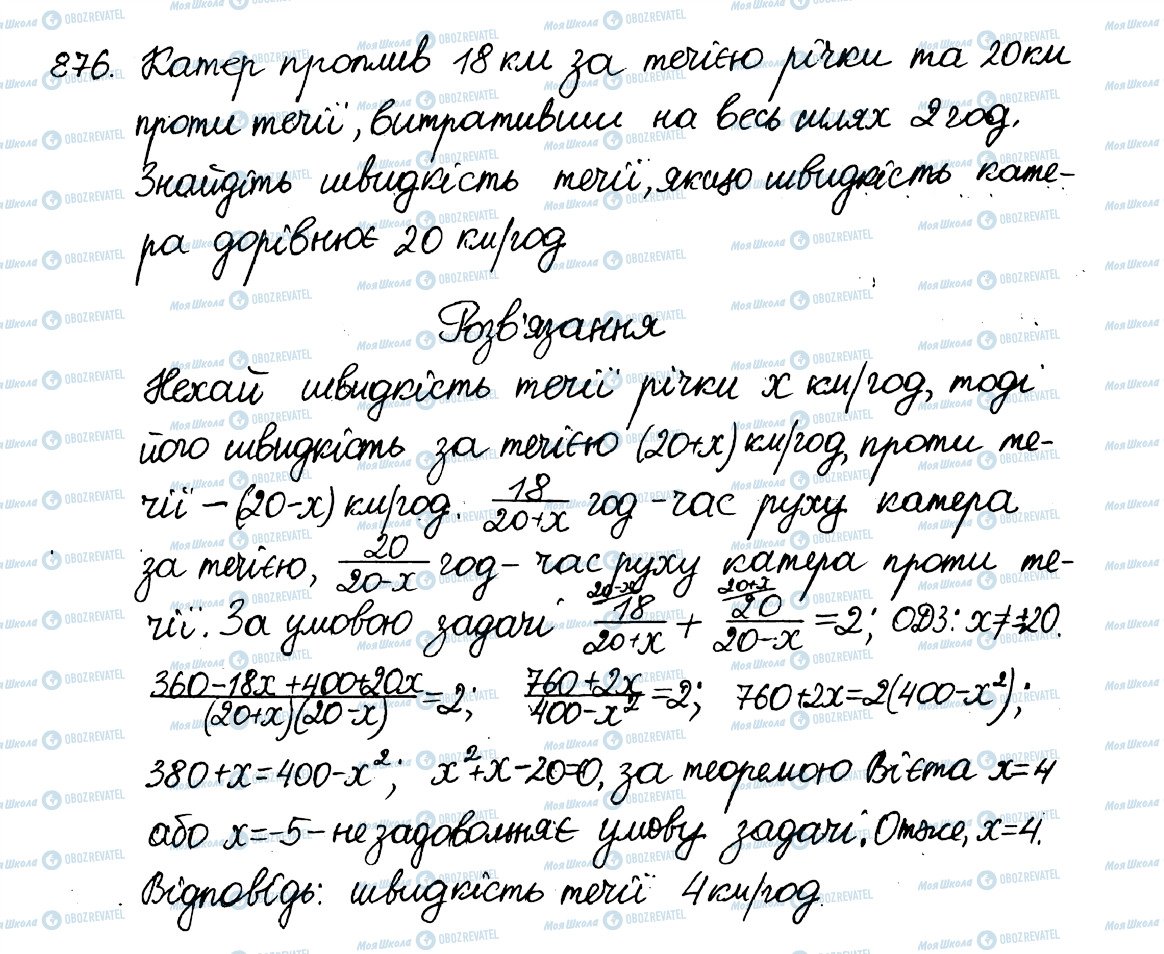 876. Катер проплив 18 км за течією річки та 20 км
проти течії, витративши на весь шлях 2 год.
Знайдіть швидкість течії, якщо швидкість кате-
ра дорівнює 20 км/год
Розв'язання
Нехай швидкість течії річки x км/год, тоді
його швидкість за течією (20+x) км/год, проти те-
чії – (20-x) км/год. 18/(20+x) год – час руху катера
за течією, 20/(20-x) год – час руху катера проти те-
чії. За умовою задачі (20-x) 18/(20+x) + (20+x) 20/(20-x) = 2; ОДЗ: x≠±20.
(360-18x+400+20x)/((20+x)(20-x)) = 2; (760+2x)/(400-x²) = 2; 760+2x=2(400-x²);
380+x=400-x²; x²+x-20=0, за теоремою Вієта x=4
або x=-5 – не задовольняє умову задачі. Отже, x=4.
Відповідь: швидкість течії 4 км/год.
МояШкола OBOZREVATEL